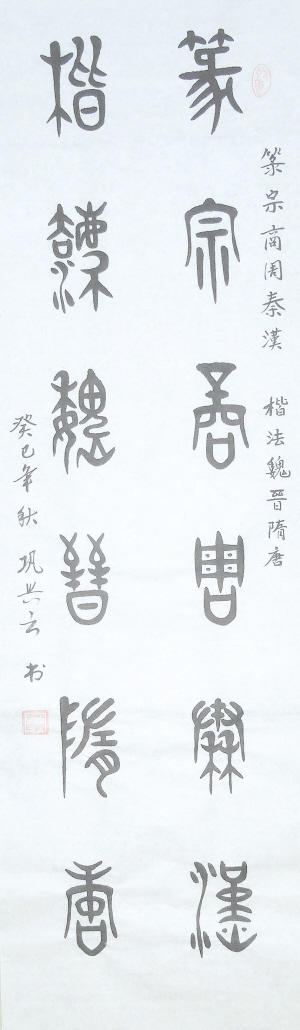 篆宗商周秦漢 楷法魏晉隋唐
篆宗商周秦漢
楷灋魏晉隋唐
癸巳年秋 巩云书